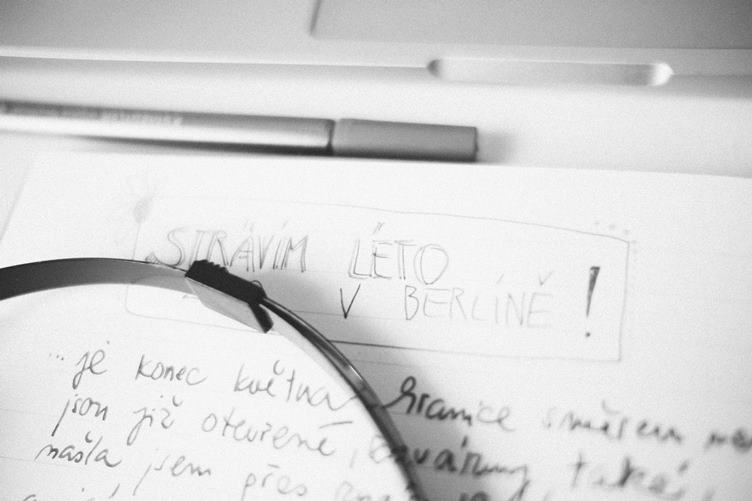 STRÁVÍM LÉTO
V BERLÍNĚ !
... je konec května hranice směrem
jsou již otevřené, kavárny také
našla jsem přes